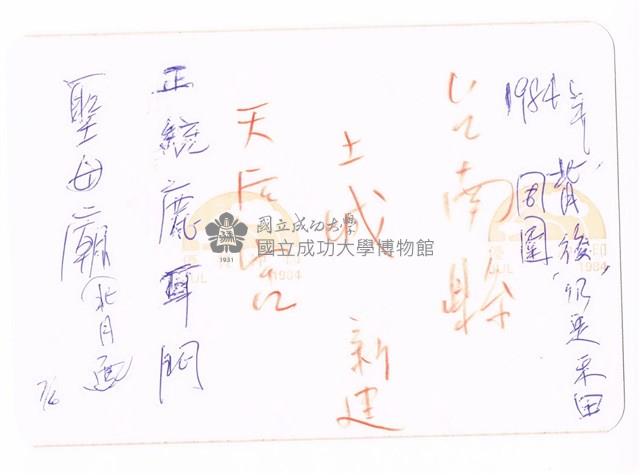 1984年
"背後"仍是禾田
周圍
台南縣
土城 新建
天后宮
正統鹿耳門
聖母廟(背面
7/6
國立成功大學
國立成功大學博物館
1931
JUL 1984
1984